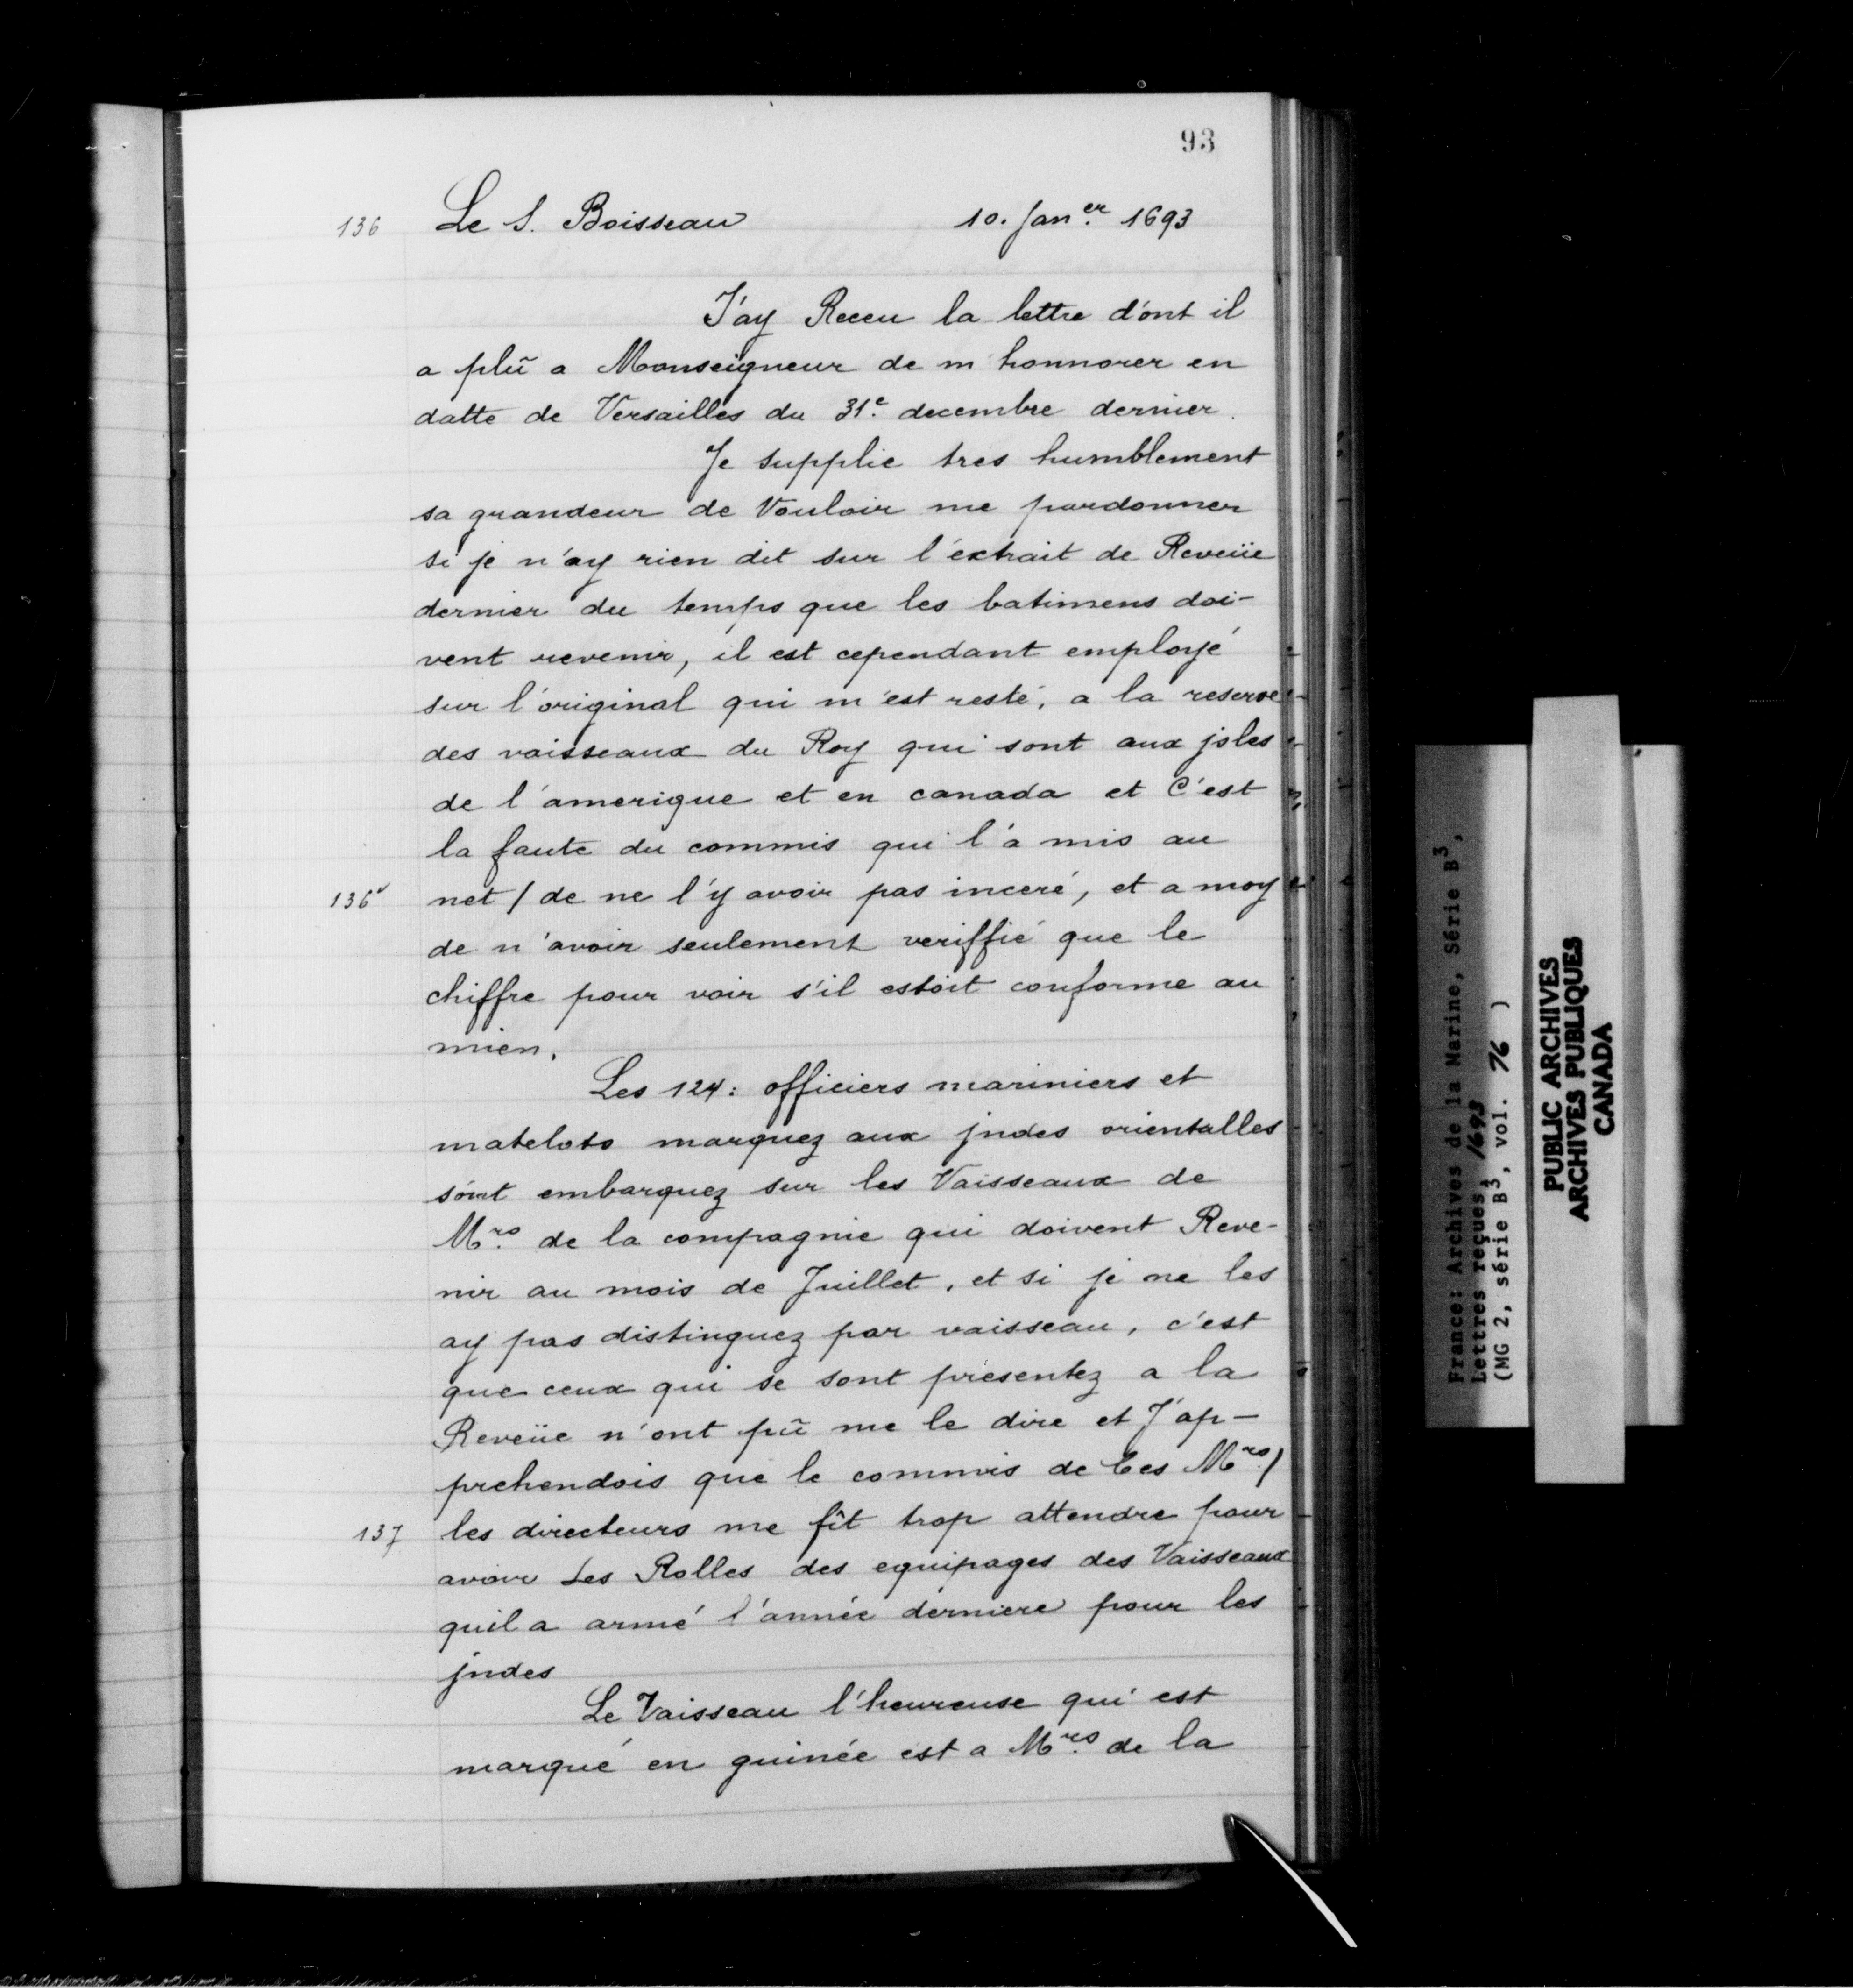 93
136 Le S. Boisseau 10. Jan.er 1693
J'ay Receu la lettre d'ont il
a plũ a Monseigneur de m'honnorer en
datte de Versailles du 31.e decembre dernier.
Je supplie tres humblement
sa grandeur de Vouloir me pardonner
si je n'ay rien dit sur l'extrait de Reveüe
dernier du temps que les batimens doi-
vent revenir, il est cependant employé
sur l'original qui m'est resté, a la reserve
des vaisseaux du Roy qui sont aux jsles
de l'amerique et en canada et C'est
la faute du commis qui l'a mis au
136v net / de ne l'y avoir pas inceré, et a moy
de n'avoir seulement veriffié que le
chiffre pour voir s'il estoit conforme au
mien.
Les 124: officiers mariniers et
matelots marquez aux jndes orientalles
sont embarquez sur les Vaisseaux de
M.rs de la compagnie qui doivent Reve-
nir au mois de Juillet, et si je ne les
ay pas distinguez par vaisseau, c'est
que ceux qui se sont presentez a la
Reveüe n'ont pũ me le dire et J'ap-
prehendois que le commis de Ces M.rs /
137 les directeurs me fît trop attendre pour
avoir Les Rolles des equipages des Vaisseaux
quil a armé l'année derniere pour les
jndes
Le Vaisseau l'heureuse qui est
marqué en guinée est a M.rs de la
France: Archives de la Marine, Série B3,
Lettres reçues, 1693
(MG 2, série B3, vol. 76 )
PUBLIC ARCHIVES
ARCHIVES PUBLIQUES
CANADA